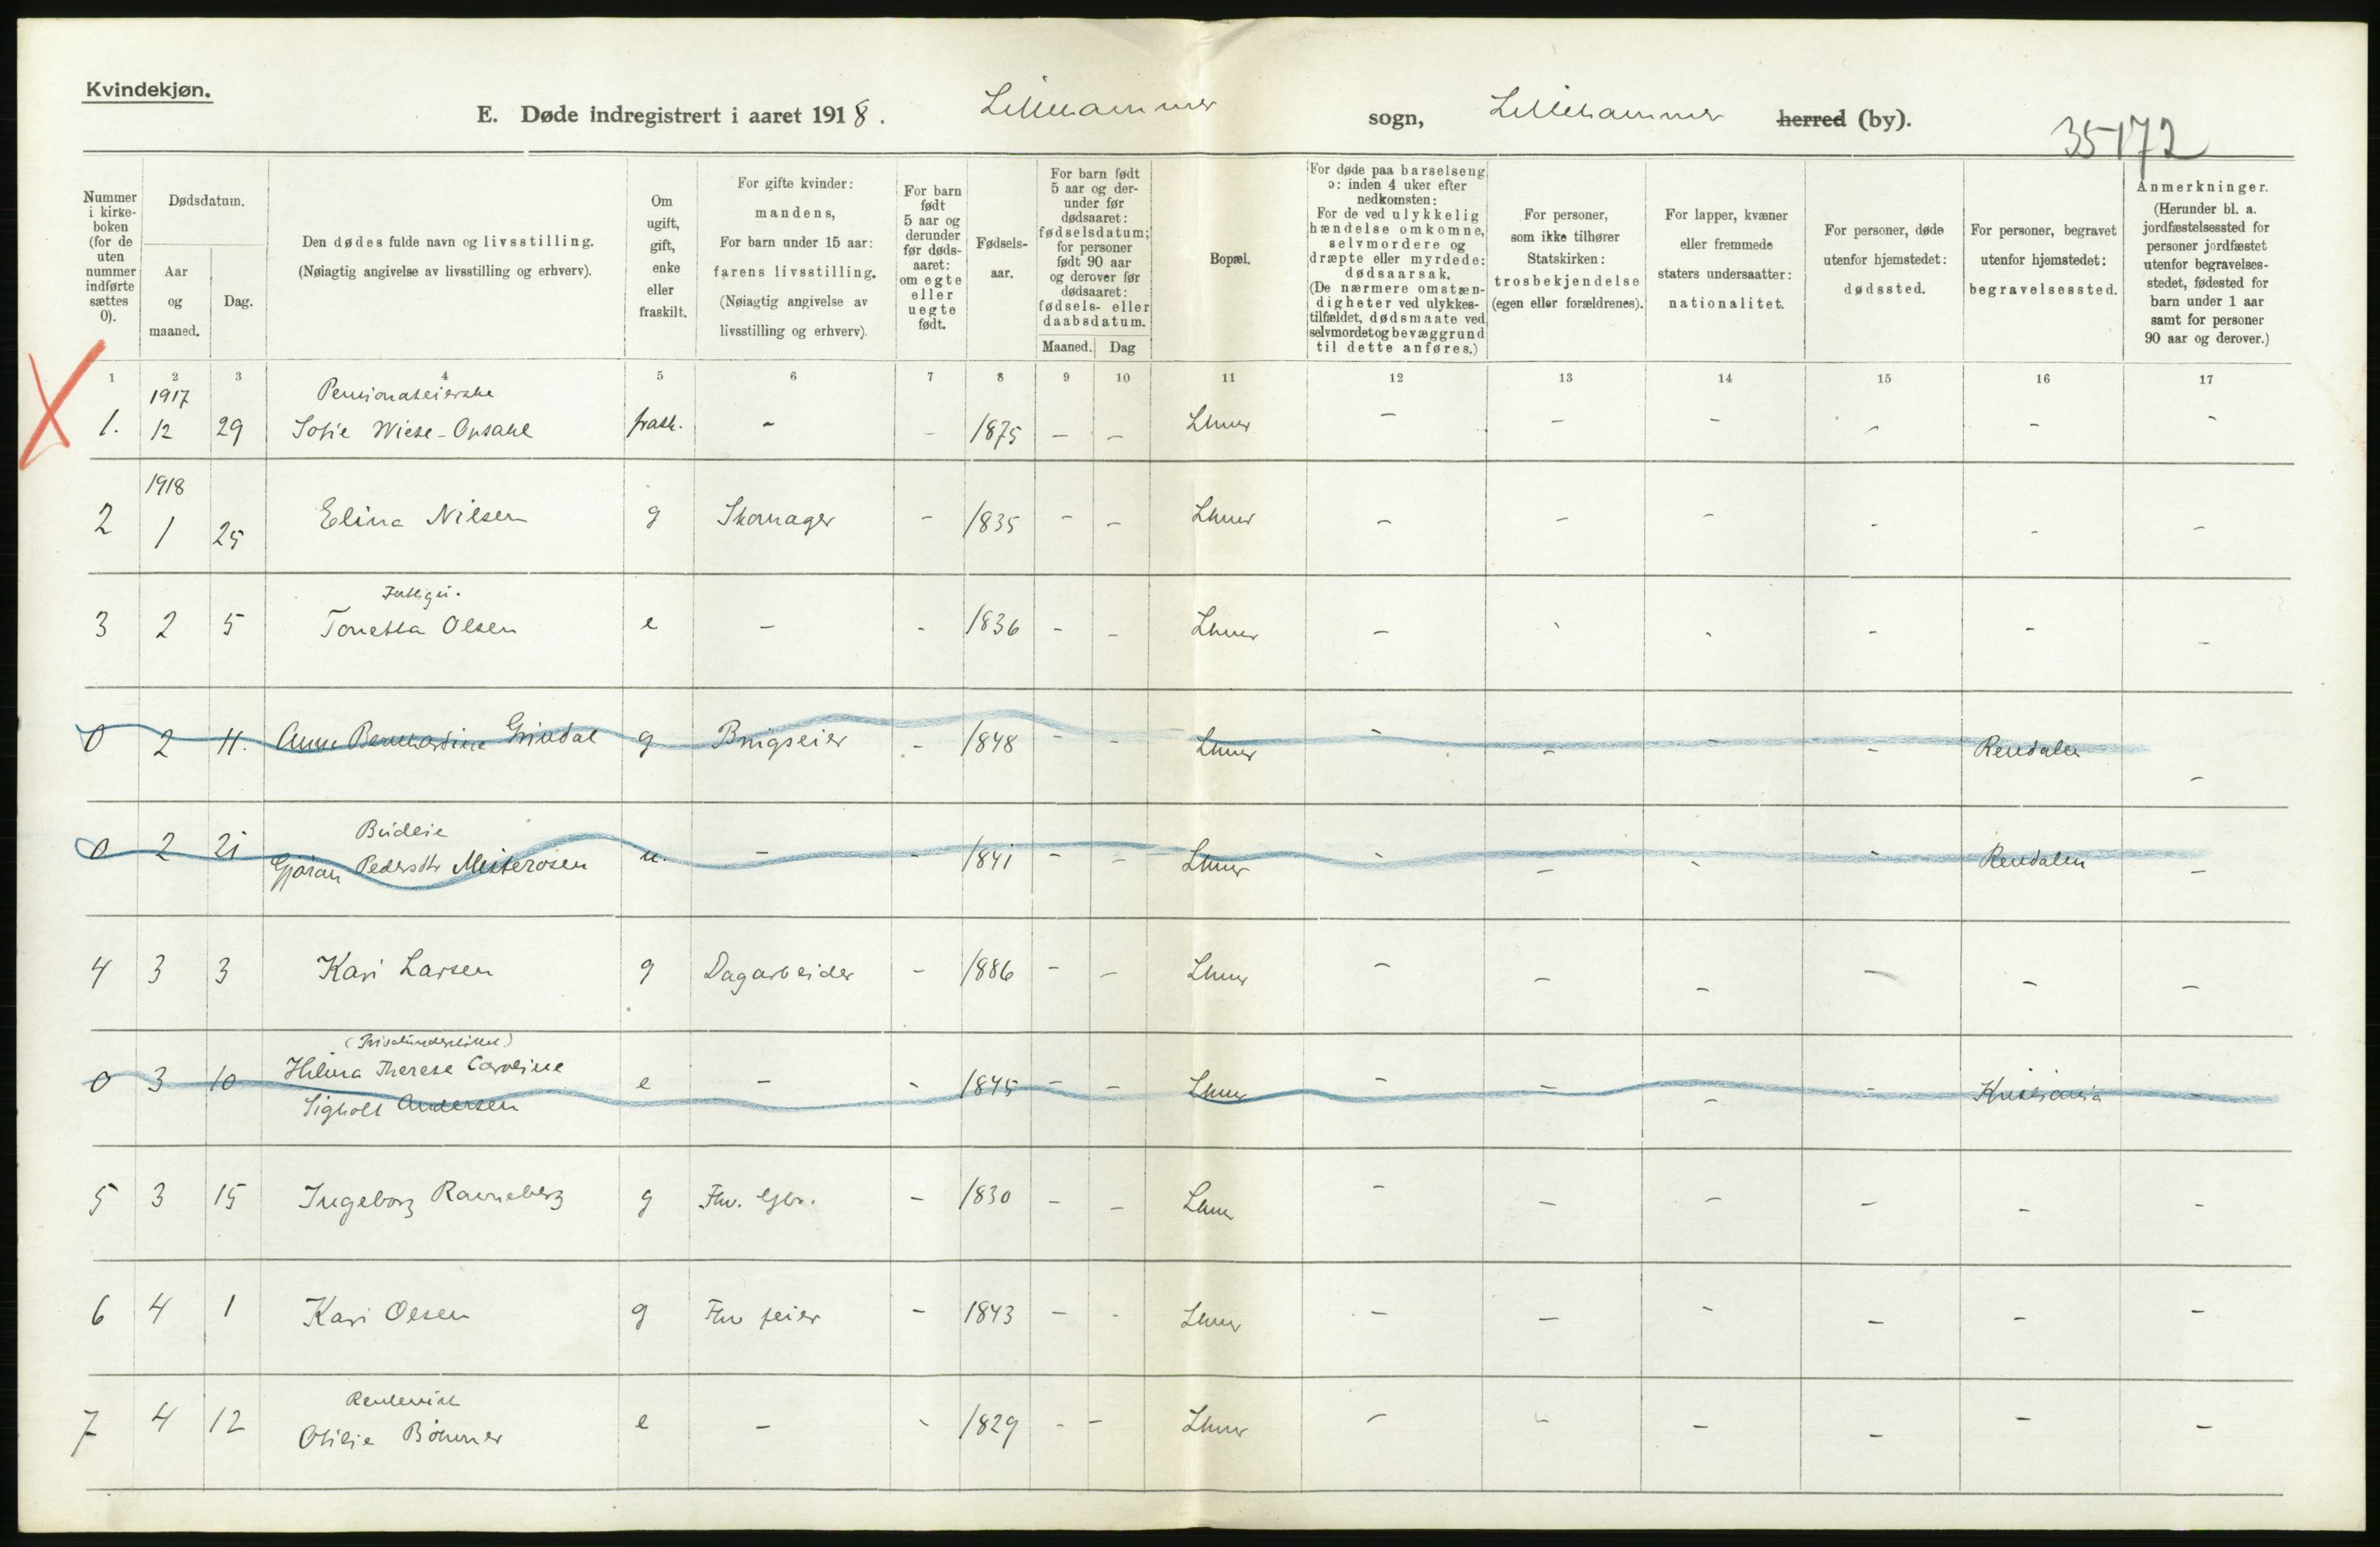 Kvindekjøn.
E. Døde indregistrert i aaret 1918. Lillehammer sogn, Lillehammer herred (by).
35172
Nummer i kirke-boken (for de uten nummer indførte sættes 0).
Dødsdatum.
Aar og maaned.
Dag.
Den dødes fulde navn og livsstilling.
(Nøiagtig angivelse av livsstilling og erhverv).
Om ugift, gift, enke eller fraskilt.
For gifte kvinder: mandens,
For barn under 15 aar: farens livsstilling.
(Nøiagtig angivelse av livsstilling og erhverv).
For barn født 5 aar og derunder før døds-aaret: om egte eller uegte født.
Fødsels-aar.
For barn født 5 aar og der-under før dødsaaret: fødselsdatum; for personer født 90 aar og derover før dødsaaret: fødsels- eller daabsdatum.
Maaned. Dag
Bopæl.
For døde paa barselseng ɔ: inden 4 uker efter nedkomsten:
For de ved ulykkelig hændelse omkomne, selvmordere og dræpte eller myrdede: dødsaarsak.
(De nærmere omstæn-digheter ved ulykkes-tilfældet, dødsmaate ved selvmordet og bevæggrund til dette anføres.)
For personer, som ikke tilhører Statskirken: trosbekjendelse (egen eller forældrenes).
For lapper, kvæner eller fremmede staters undersaatter: nationalitet.
For personer, døde utenfor hjemstedet: dødssted.
For personer, begravet utenfor hjemstedet: begravelsessted.
Anmerkninger.
(Herunder bl. a. jordfæstelsessted for personer jordfæstet utenfor begravelses-stedet, fødested for barn under 1 aar samt for personer 90 aar og derover.)
1 2 3 4 5 6 7 8 9 10 11 12 13 14 15 16 17
1917 Pensionateierske
1. 12 29 Sofie Wiese-Opsahl frask. - - 1875 - - Lhmer - - - - - -
1918
2 1 25 Elina Nilsen g Skomager - 1835 - - Lhmer - - - - - -
3 2 5 Tonetta Olsen e - - 1836 - - Lhmer - - - - - -
0 2 11. Anne Bernhardine Grindal g Brugseier - 1848 - - Lhmer - - - - Rendalen -
Budeie
0 2 21 Gjøran Pedersdtr Misterosen u. - - 1841 - - Lhmer - - - - Rendalen -
4 3 3 Kari Larsen g Dagarbeider - 1886 - - Lhmer - - - - - -
(Privatunderstøttet)
0 3 10 Hilma Therese Caroline e - - 1845 - - Lhmer - - - - Kristiania -
Sigholt Andersen
5 3 15 Ingeborg Ravneberg g Fhv. Gbr. - 1830 - - Lhmr - - - - - -
6 4 1 Kari Olsen g Fhv feier - 1843 - - Lhmer - - - - - -
7 4 12 Otilie Bømer e - - 1829 - - Lhmer - - - - - -